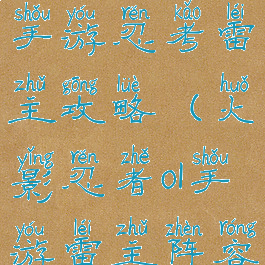 shǒu yóu rěn kǎo léi
手游忍考雷
zhǔ gōng lüè huǒ
主攻略(火
yǐng rěn zhě shǒu
影忍者ol手
yóu léi zhǔ zhèn róng
游雷主阵容